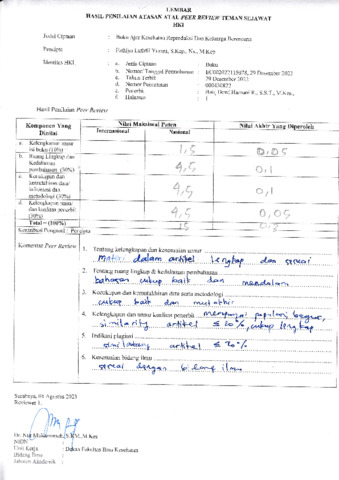 LEMBAR
HASIL PENILAIAN ATASAN ATAU PEER REVIEW TEMAN SEJAWAT
HKI
Judul Ciptaan : Buku Ajar Kesehatan Reproduksi Dan Keluarga Berencana
Pencipta : S.Kep., Ns., M.Kep
Identitas HKI : a. Jenis Ciptaan : Buku
b. Nomor/Tanggal Permohonan : 29 Desember 2022
c. Tahun Terbit : 29 Desember 2022
d. Nomor Pencatatan : 000430822
e. Penerbit
f. Halaman : 1
Hasil Penilaian Peer Review
Komponen Yang Dinilai
Nilai Maksimal Paten
Nilai Akhir Yang Diperoleh
Internasional
Nasional
a. Kelengkapan unsur isi buku (10%) 1,5 0,05
b. Ruang lingkup dan kedalaman pembahasan (30%) 4,5 0,1
c. Kecukupan dan kemutakhiran data/informasi dan metodologi (30%) 4,5 0,1
d. Kelengkapan unsur dan kualitas penerbit (30%) 4,5 0,05
Total = (100%) 15 0,3
Kontribusi Pengusul : Pencipta
Komentar Peer Review
1. Tentang kelengkapan dan kesesuaian unsur
Materi dalam artikel lengkap dan sesuai
2. Tentang ruang lingkup & kedalaman pembahasan
bahasan cukup baik dan mendalam
3. Kecukupan dan kemutakhiran data serta metodologi
cukup baik dan mutakhir
4. Kelengkapan unsur dan kualitas penerbit
similarity artikel ≤ 20%, cukup lengkap
5. Indikasi plagiasi
similarity artikel ≤ 20%
6. Kesesuaian bidang ilmu
sesuai dengan bidang ilmu
Surabaya, Agustus 2023
Reviewer 1,
NIDN :
Unit Kerja : Dekan Fakultas Ilmu Kesehatan
Bidang Ilmu :
Jabatan Akademik :